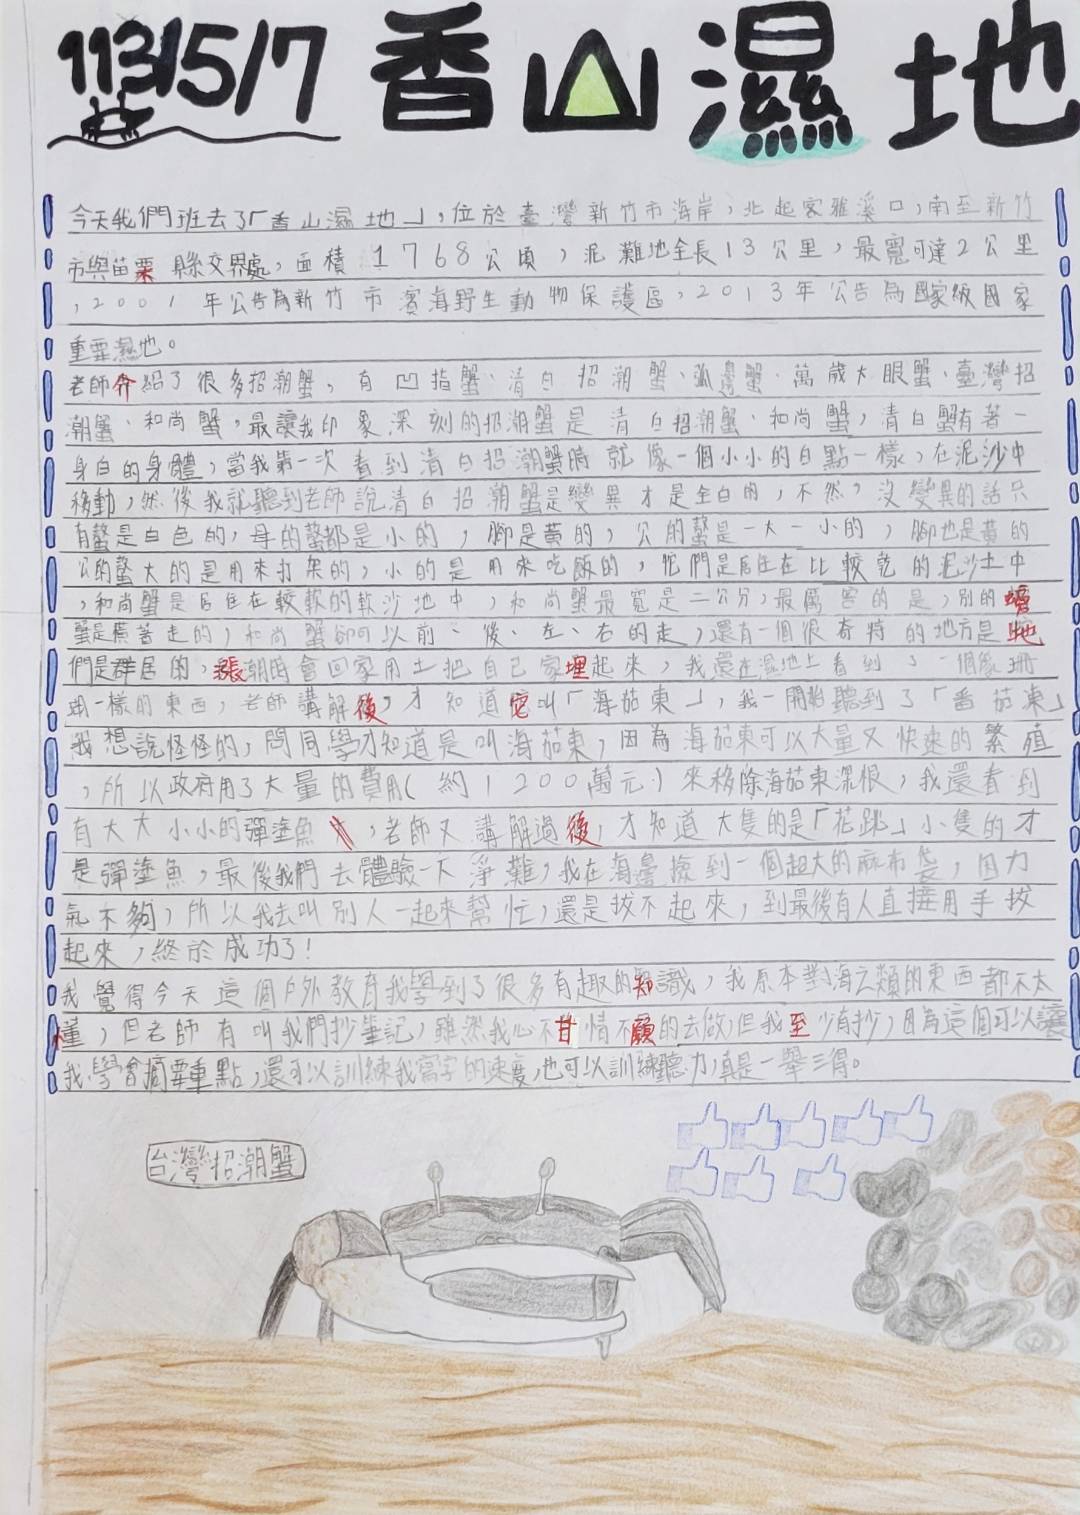 113/5/7 香山濕地
今天我們班去了「香山濕地」,位於臺灣新竹市海岸,北起客雅溪口,南至新竹
市與苗栗縣交界處,面積1768公頃,泥灘地全長13公里,最寬可達2公里
,2001年公告為新竹市濱海野生動物保護區,2013年公告為國家級國家
重要濕地。
老師介紹了很多招潮蟹,有凹指蟹、清白招潮蟹、弧邊蟹、萬歲大眼蟹、臺灣招
潮蟹、和尚蟹,最讓我印象深刻的招潮蟹是清白招潮蟹、和尚蟹,清白蟹有著一
身白的身體,當我第一次看到清白招潮蟹時就像一個小小的白點一樣,在泥沙中
移動,然後我就聽到老師說清白招潮蟹是變異才是全白的,不然,沒變異的話只
有螯是白色的,母的螯都是小的,腳是黃的,公的螯是一大一小的,腳也是黃的
公的螯大的是用來打架的,小的是用來吃飯的,牠們是居住在比較乾的泥沙土中
,和尚蟹是居住在較軟的軟沙地中,和尚蟹最寬是二公分,最厲害的是,別的螃
蟹是橫著走的,和尚蟹卻可以前、後、左、右的走,還有一個很奇特的地方是牠
們是群居的,漲潮時會回家用土把自己家埋起來,我還在濕地上看到了一個像珊
瑚一樣的東西,老師講解後,才知道它叫「海茄苳」,我一開始聽到了「番茄凍」
我想說怪怪的,問同學才知道是叫海茄苳,因為海茄苳可以大量又快速的繁殖
,所以政府用了大量的費用(約1200萬元)來移除海茄苳深根,我還看到
有大大小小的彈塗魚,老師又講解過後,才知道大隻的是「花跳」小隻的才
是彈塗魚,最後我們去體驗一下淨灘,我在海邊撿到一個超大的麻布袋,因力
氣不夠,所以我去叫別人一起來幫忙,還是拔不起來,到最後有人直接用手拔
起來,終於成功了!
我覺得今天這個戶外教育我學到了很多有趣的知識,我原本對海之類的東西都不太
懂,但老師有叫我們抄筆記,雖然我心不甘情不願的去做,但我至少有抄,因為這個可以讓
我學會摘要重點,還可以訓練我寫字的速度,也可以訓練聽力,真是一舉三得。
台灣招潮蟹